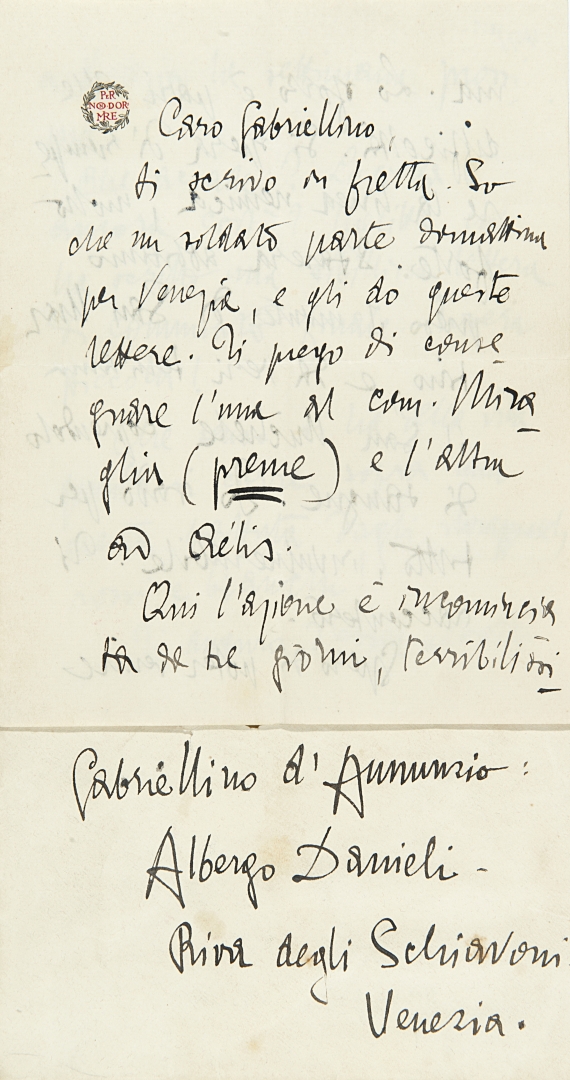 PER
NON DOR
MIRE
Caro Gabriellino,
ti scrivo in fretta. So
che un soldato parte domattina
per Venezia, e gli do queste
lettere. Ti prego di conse
gnare l'una al com. Mira
glia (preme) e l'altra
ad Aélis.
Qui l'azione è incomincia
ta da tre giorni, terribilissi
Gabriellino d'Annunzio:
Albergo Danieli -
Riva degli Schiavoni
Venezia.